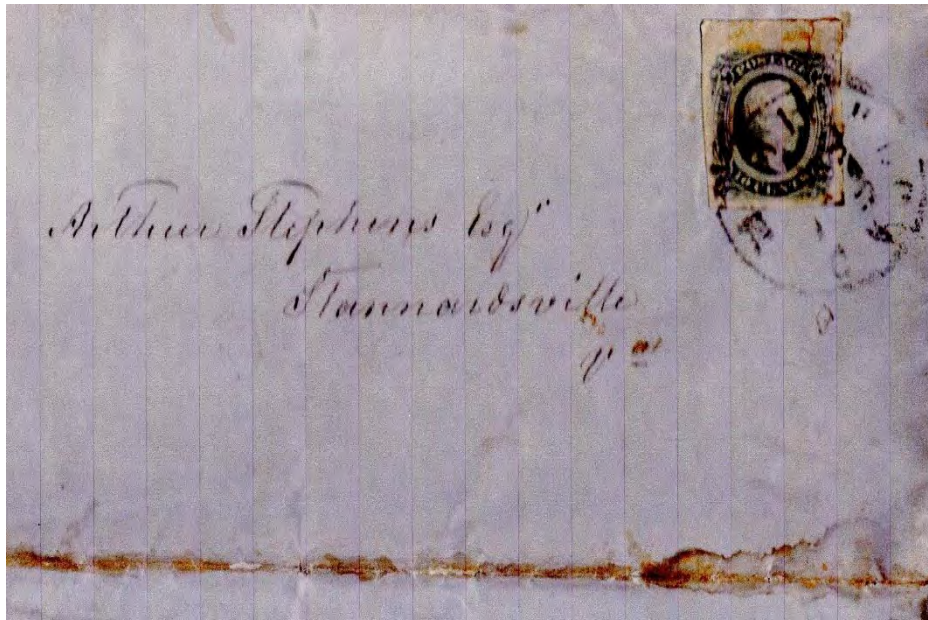 POSTAGE
Arthur Stephens Esqr
Stannardsville
Va